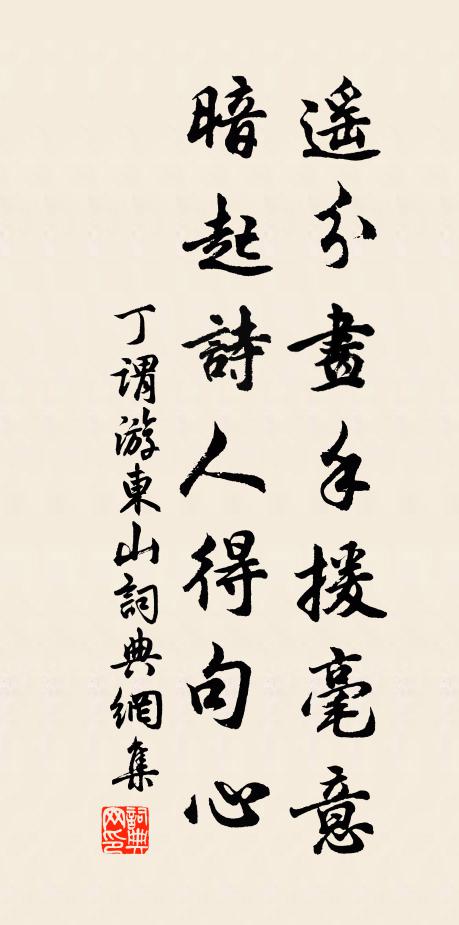 遥分畫手援毫意
暗起詩人得句心
丁謂游東山詞典網集
詞典網印